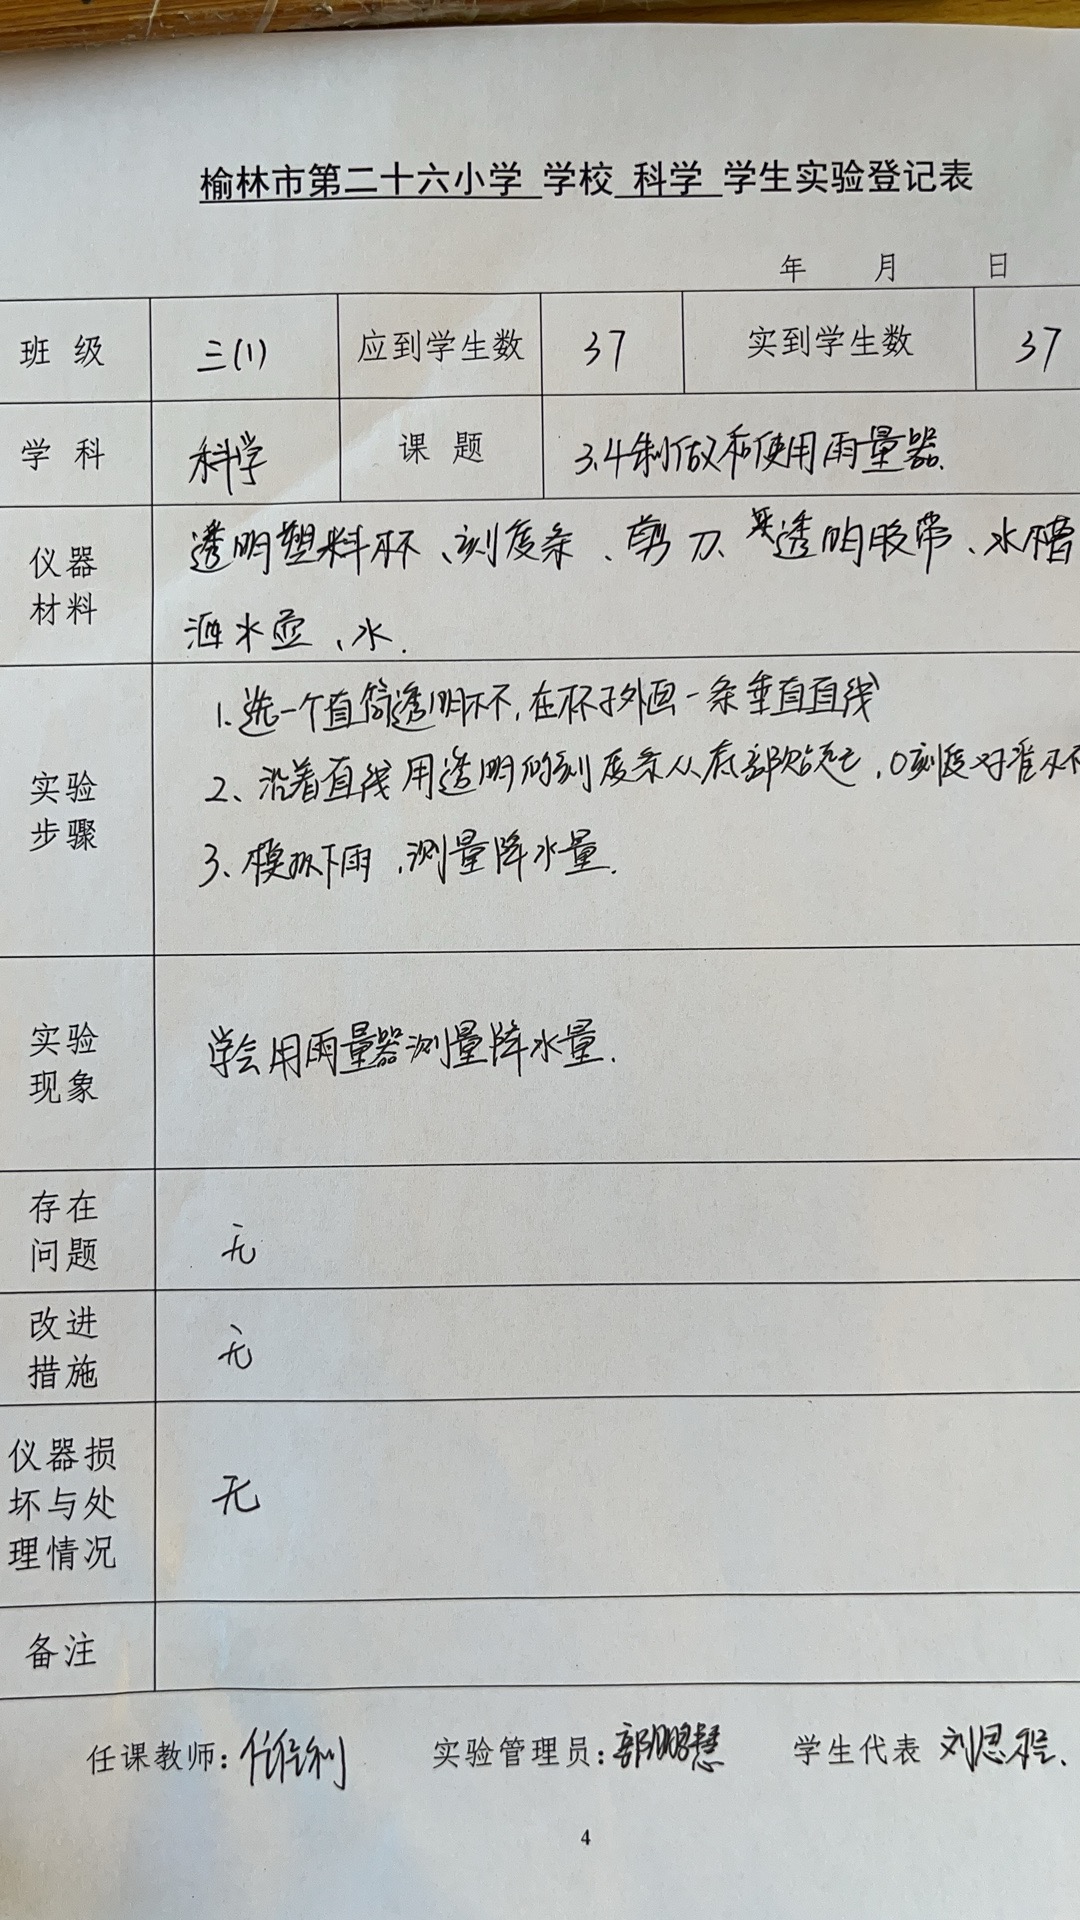 榆林市第二十六小学 学校 科学 学生实验登记表
年 月 日
班 级 三(1) 应到学生数 37 实到学生数 37
学 科 科学 课 题 3.4制做和使用雨量器.
仪器
材料
透明塑料杯、刻度条、剪刀、透明胶带、水槽
洒水壶、水.
实验
步骤
1.选一个直筒透明杯,在杯子外画一条垂直直线
2、沿着直线用透明的刻度条从底部贴起,0刻度对准杯
3、模拟下雨,测量降水量.
实验
现象
学会用雨量器测量降水量.
存在
问题
无
改进
措施
无
仪器损
坏与处
理情况
无
备注
任课教师: 实验管理员:郭鹏慧 学生代表 刘思程.
4